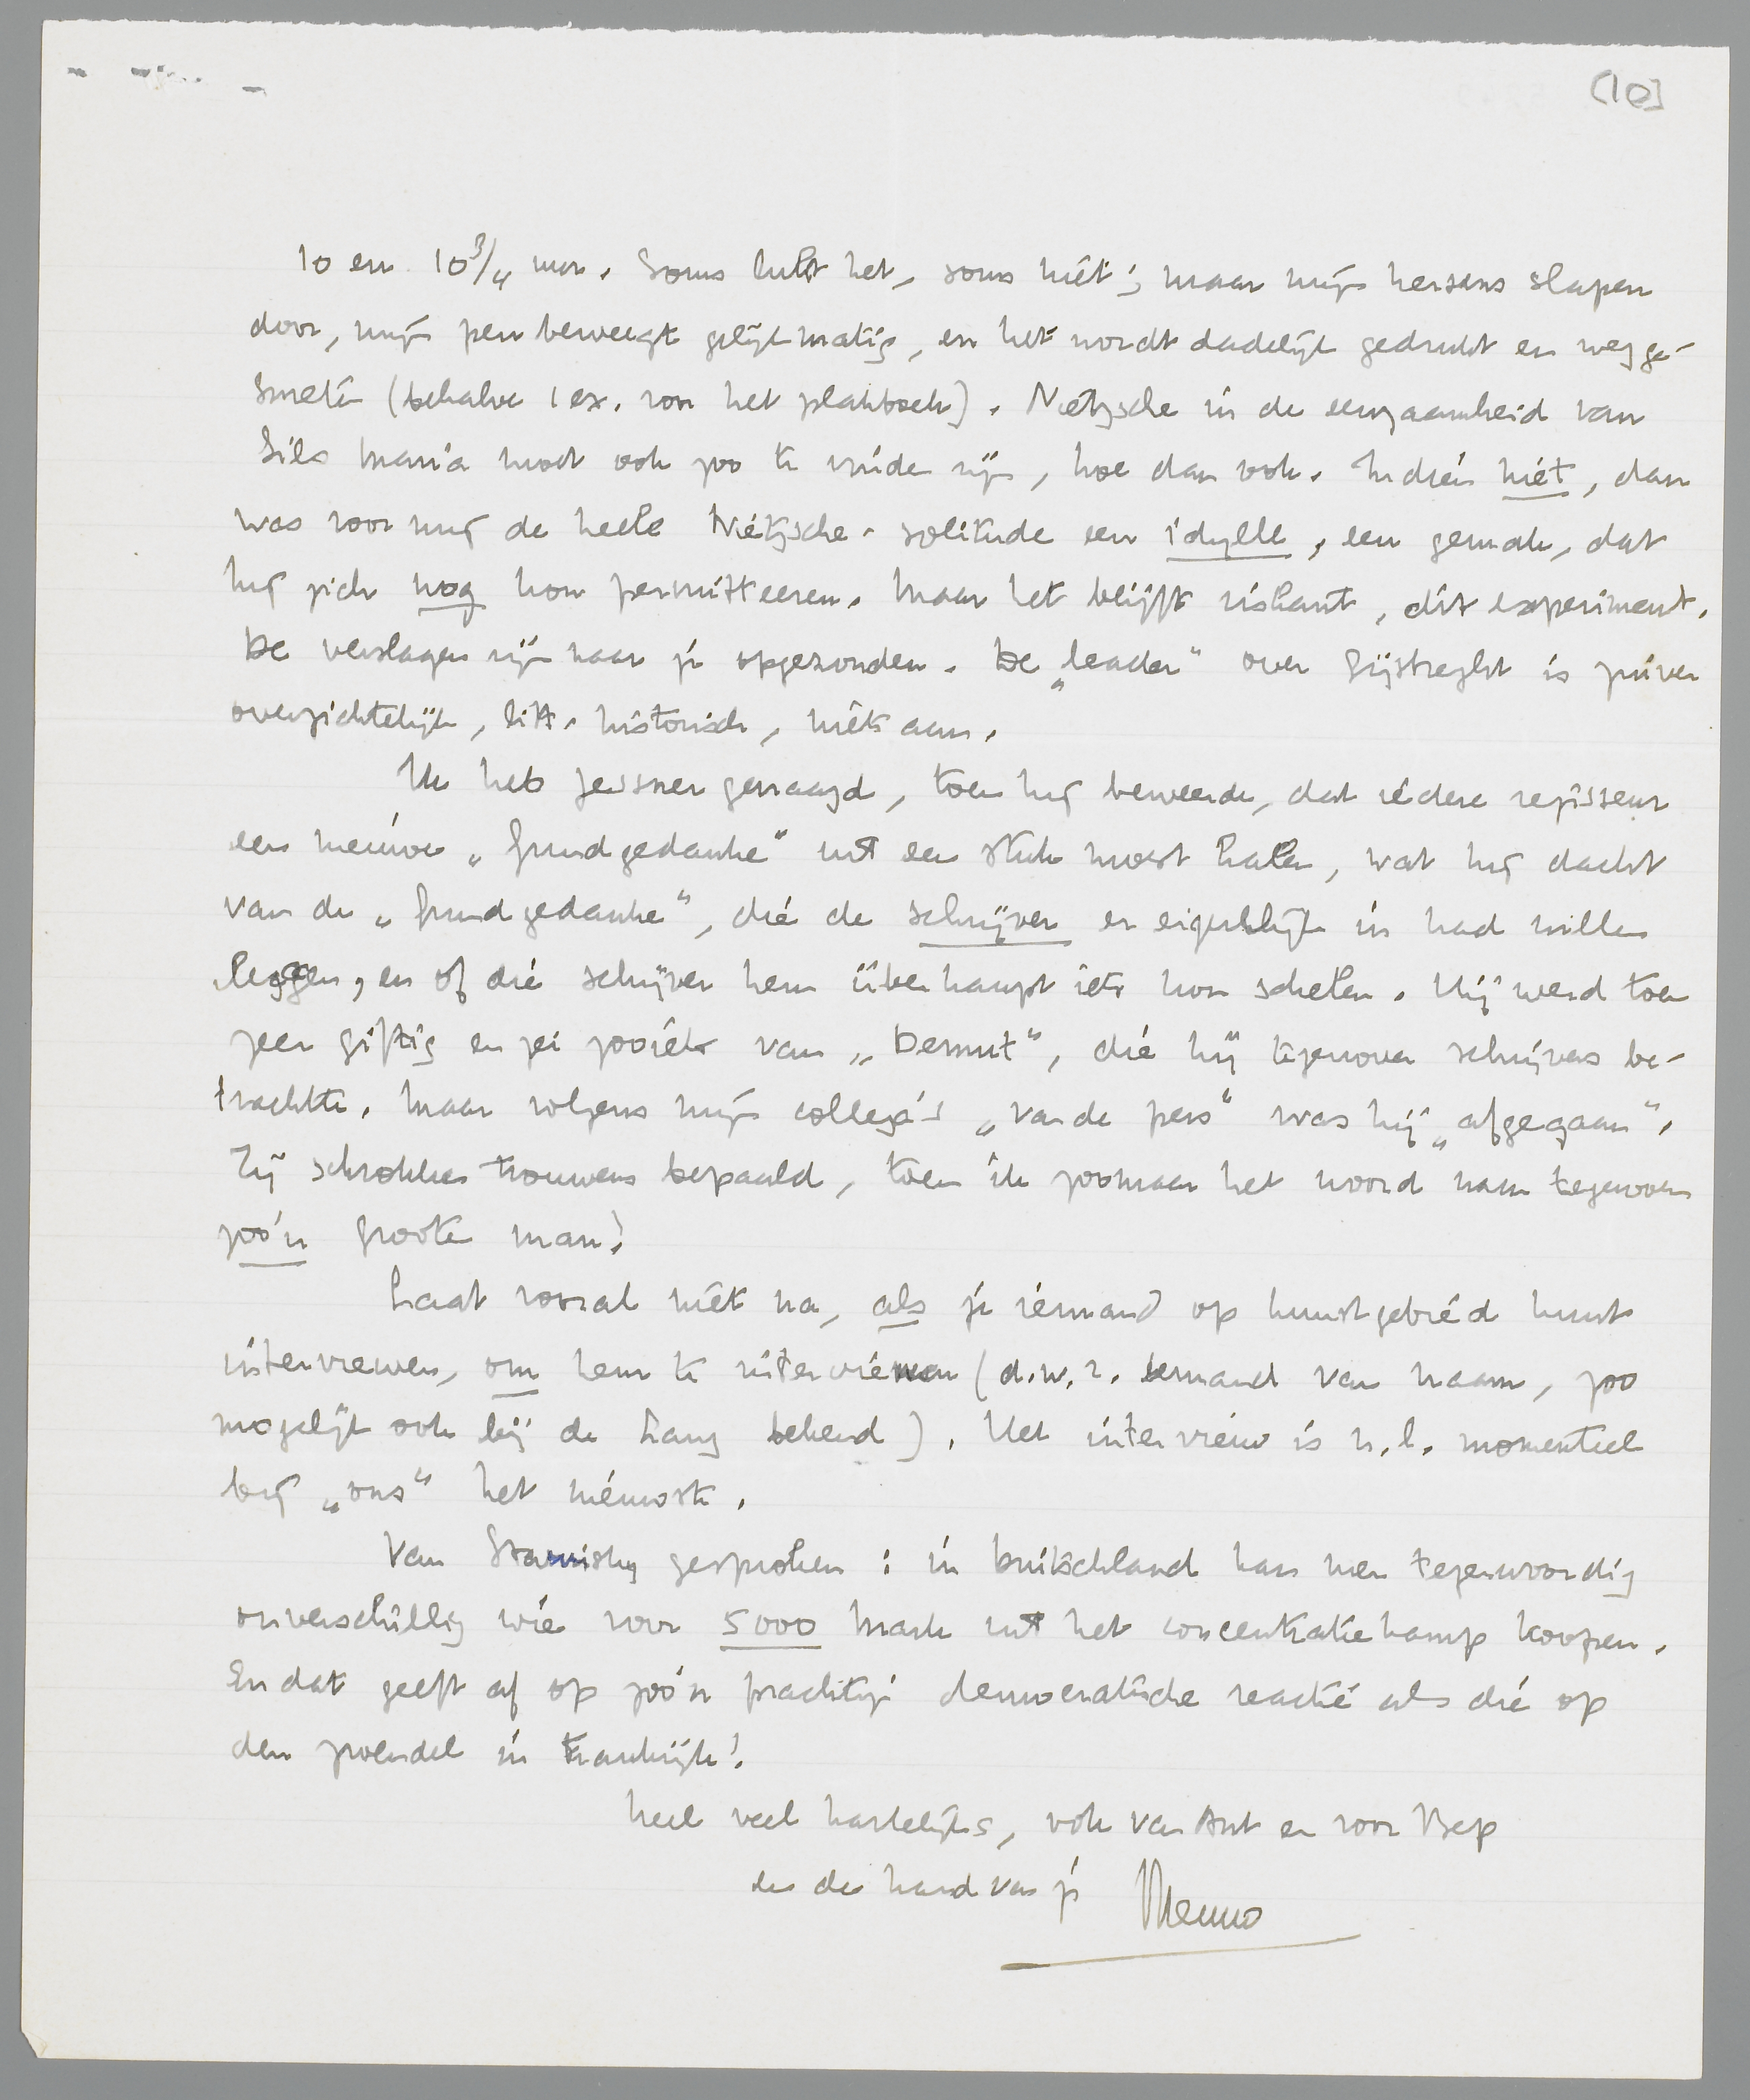 (10]
10 en 10¾ uur. Soms lukt het, soms niet; maar mijn hersens slapen
door, mijn pen beweegt gelijkmatig, en het wordt dadelijk gedrukt en wegge-
smeten (behalve 1 ex. voor het plakboek). Nietzsche in de eenzaamheid van
Sils Maria moet ook zoo te vinden zijn, hoe dan ook. Indien niet, dan
was voor mij de heele Nietzsche-solitude een idylle, een gemak, dat
hij zich nog kon permitteeren. Maar het blijft riskant, dit experiment.
De verslagen zijn naar je opgezonden. De „leader" over Gijsbreght is zuiver
overzichtelijk, litt. historisch, niets aan.
Ik heb Jessner gevraagd, toen hij beweerde, dat iedere regisseur
een nieuwe „Grundgedanke" uit een stuk moest halen, wat hij dacht
van de „Grundgedanke", die de schrijver er eigenlijk in had willen
leggen, en of die schrijver hem überhaupt iets kon schelen. Hij werd toen
zeer giftig en zei zooiets van „Demut", die hij tegenover schrijvers be-
trachtte. Maar volgens mijn collega's „van de pers" was hij „afgegaan".
Zij schrokken trouwens bepaald, toen ik zoomaar het woord nam tegenover
zoo'n groote man!
Laat vooral niet na, als je iemand op kunstgebied kunt
interviewen, om hem te interviewen (d.w.z. iemand van naam, zoo
mogelijk ook bij de Haag bekend). Het interview is n.l. momenteel
bij „ons" het nieuwste.
Van Stavisky gesproken: in Duitschland kan men tegenwoordig
onverschillig wie voor 5000 Mark uit het concentratiekamp koopen.
En dat geeft af op zoo'n prachtige democratische reactie als die op
den zwendel in Frankrijk!
Heel veel hartelijks, ook van Ant en voor Bep
en de hand van je Menno